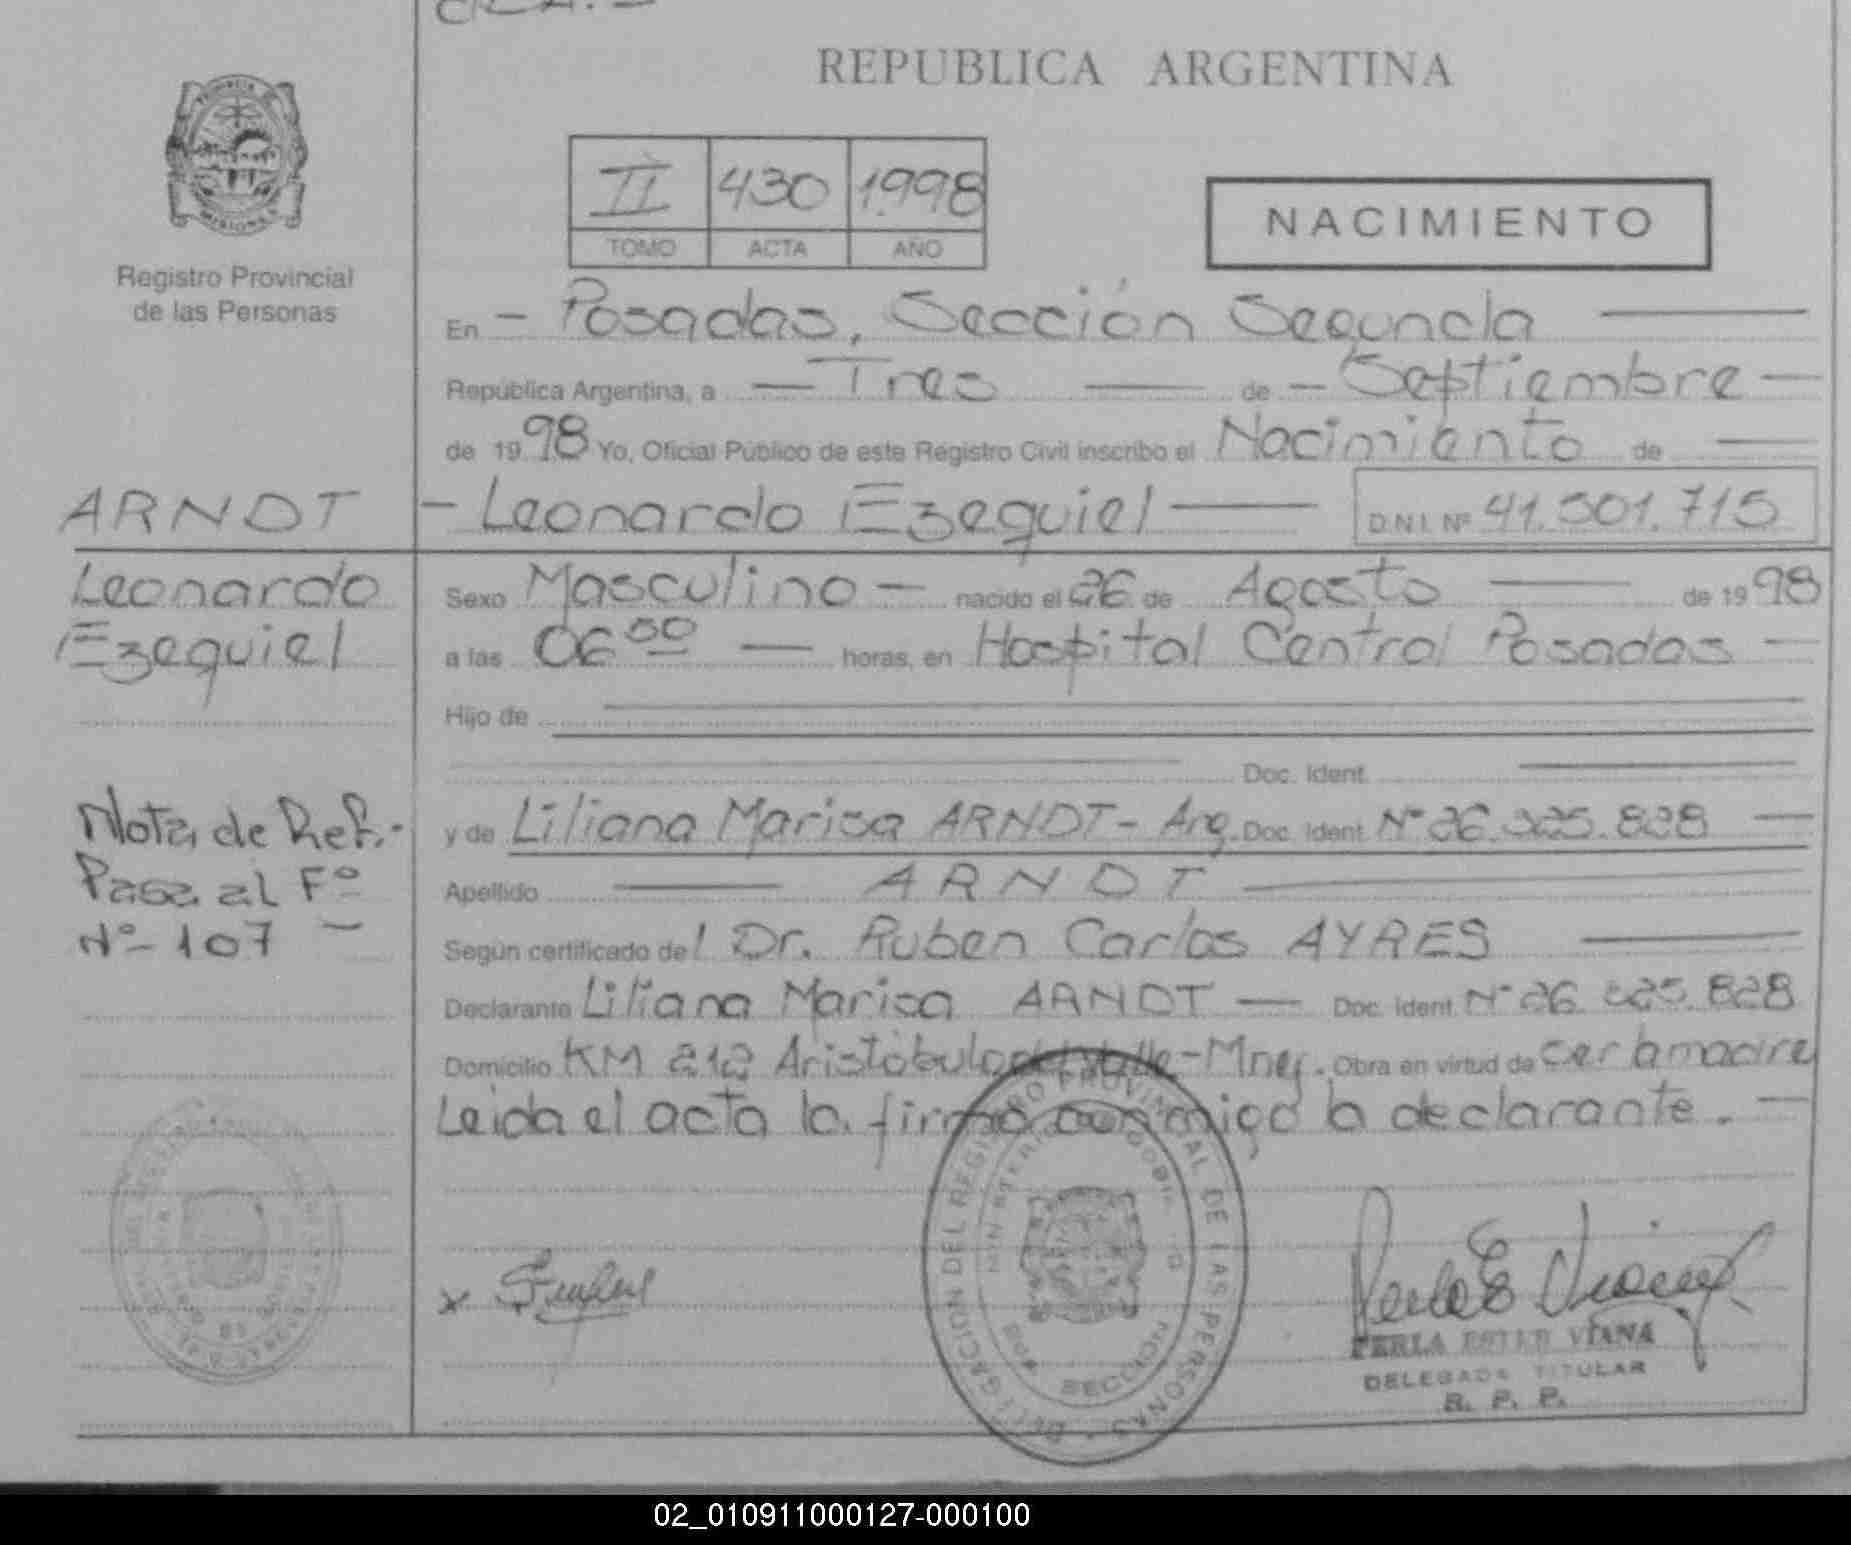 REPUBLICA ARGENTINA
PROVINCIA DE
MISIONES
Registro Provincial
de las Personas
II 430 1998
TOMO ACTA AÑO
NACIMIENTO
En - Posadas, Sección Segunda
República Argentina, a Tres de - Septiembre -
de 1998 Yo, Oficial Público de este Registro Civil inscribo el Nacimiento de
- Leonardo Ezequiel D.N.I. Nº 41.301.715
ARNDT
Leonardo
Ezequiel
Sexo Masculino - nacido el 26 de Agosto de 1998
a las 06 horas, en Hospital Central Posadas -
Hijo de
Doc. Ident.
y de Liliana Marisa ARNDT - Arg. Doc. Ident. Nº 26.325.828
Apellido ARNDT
Según certificado del Dr. Ruben Carlos AYRES
Declarante Liliana Marisa ARNDT - Doc. Ident. Nº 26.325.828
Domicilio KM 212 Aristóbulo del Valle - Mnes. Obra en virtud de ser la madre
Leida el acta la firma conmigo la declarante. -
Nota de Ref.-
Pasa al Fº
Nº 107 -
DELEGACION DEL REGISTRO PROVINCIAL DE LAS PERSONAS
MINISTERIO GOBIERNO
SECCION
x
PERLA ESTER VIANA
DELEGADA TITULAR
R. P. P.
02_010911000127-000100